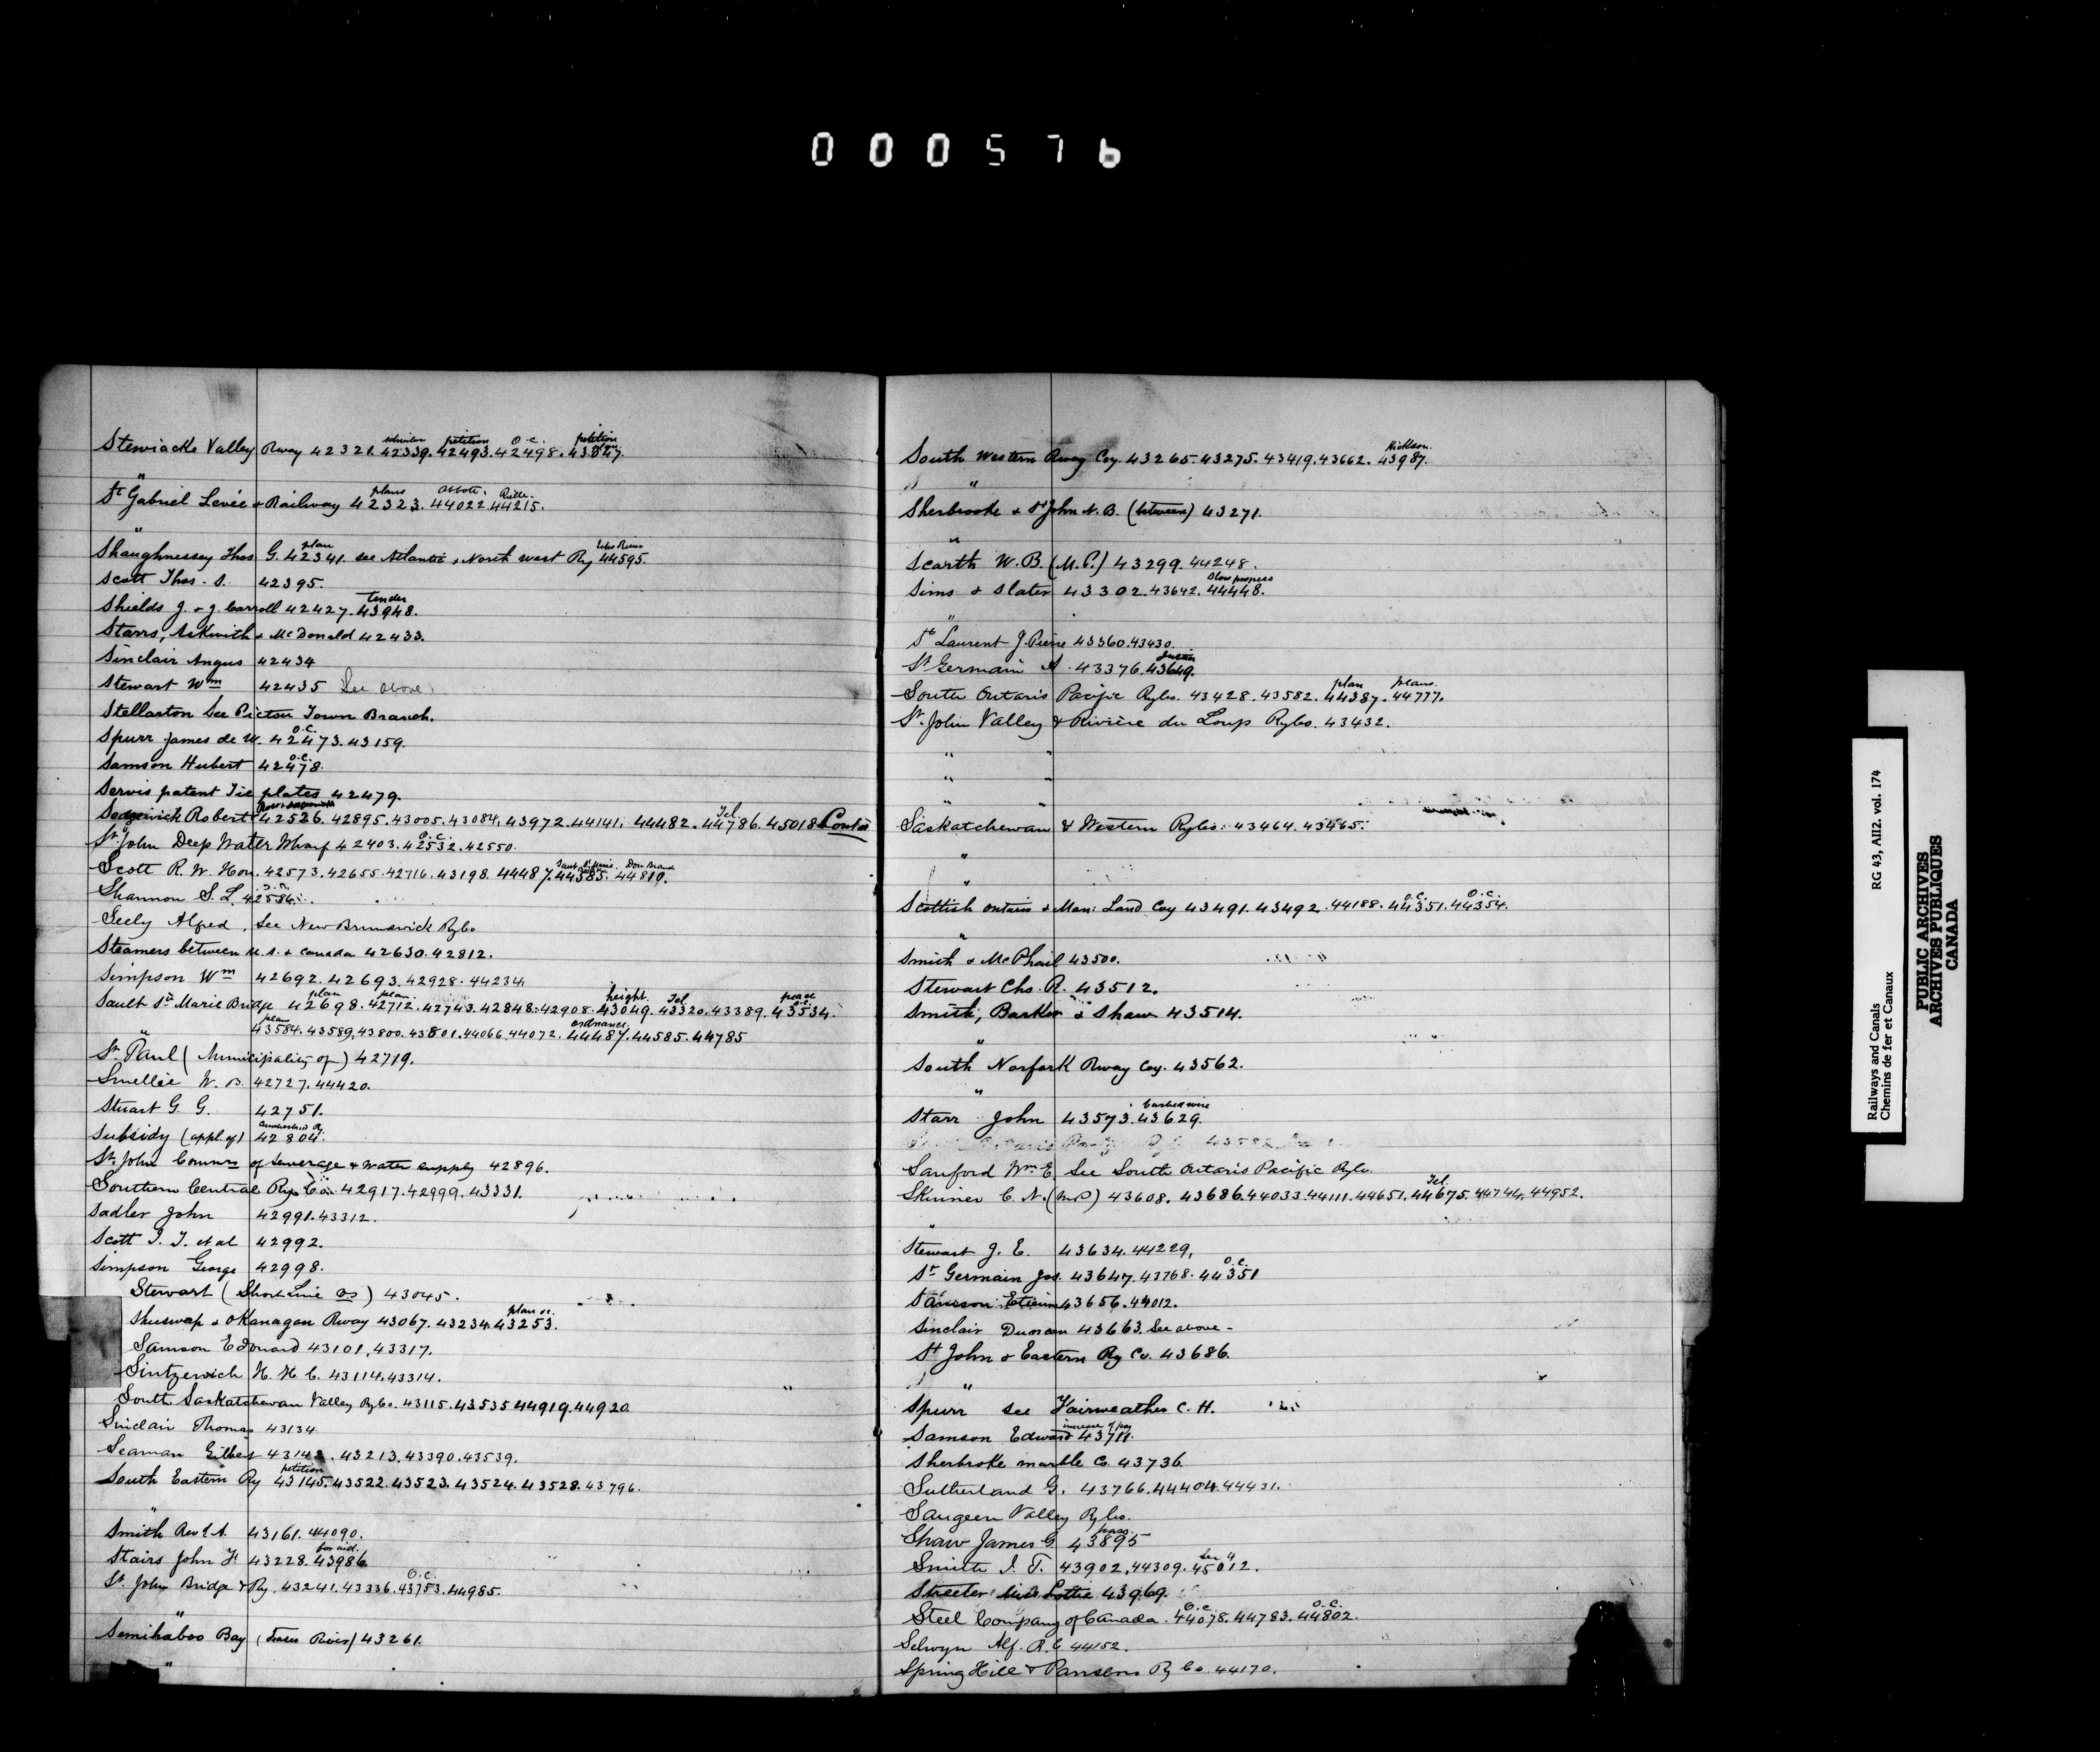 000576
Stewiacke Valley Rway 42321. 42339. petition 42493. O.C. 42498. petition
"
St Gabriel Levée & Railway plans 42323. Abbott. 44022. 44215.
"
Shaughnessey Thos G. plan 42341. see Atlantic & North West Ry 44595.
Scott Thos. S. 42395.
Shields J. & J. Carroll 42427. tender 43948.
Starrs, Askwith & McDonald 42433.
Sinclair Angus 42434
Stewart Wm 42435 See above
Stellarton See Pictou Town Branch.
Spurr James de W. O.C. 42473. 43159.
Samson Hubert O.C. 42478.
Servis patent Tie plates 42479.
Sedgewick Robert 42526. 42895. 43005. 43084. 43972. 44141. 44482. Tel. 44786. 45018
St John Deep Water Wharf 42403. O.C. 42532. 42550.
Scott R. W. Hon. 42573. 42655. 42716. 43198. 44487. 44585. 44819.
Shannon S. L. 42586.
Seely Alfred, See New Brunswick Ry Co
Steamers between U.S. & Canada 42630. 42812.
Simpson Wm 42692. 42693. 42928. 44234
Sault Ste Marie Bridge plan 42698. plan 42712. 42743. 42848. 42908. height. 43049. Tel 43320. 43389. O.C. 43534.
plan 43584. 43589, 43800. 43801. 44066. 44072. ordnance 44487. 44585. 44785
"
St. Paul (Municipality of) 42719.
Smellie W. B. 42727. 44420.
Stuart G. G. 42751.
Subsidy (appl. of) 42804.
St John Commrs of Sewerage & Water supply 42896.
Southern Central Ry Co. 42917. 42999. 43331.
Sadler John 42991. 43312.
Scott I. J. et al 42992.
Simpson George 42998.
Stewart (Short Line) 43045.
Shuswap & Okanagan Rway 43067. 43234. plan 43253.
Samson Edouard 43101, 43317.
Sintzenich H. H. C. 43114. 43314.
South Saskatchewan Valley Ry Co. 43115. 43535 44919. 44920
Sinclair Thomas 43134
Seaman Gilbert 43213. 43390. 43539.
South Eastern Ry petition 43145. 43522. 43523. 43524. 43528. 43796.
"
Smith Rev 43161. 44090.
Stairs John F. 43228. for aid. 43986
St. John Bridge & Ry. 43241. 43336. O.C. 43753. 44985.
"
Semihaboo Bay (Fraser River) 43261.
"
South Western Rway Coy. 43265. 43275. 43419. 43662. Hickson. 43987.
"
Sherbrooke & St John N.B. (between) 43271.
"
Scarth W. B. (M.P.) 43299. 44248.
Sims & Slater 43302. 43642. Slow progress 44448.
"
St Laurent J. Pierre 43360. 43430.
St Germain A. 43376. 43649.
South Ontario Pacific Ry Co. 43428. 43582. plan 44387. plans. 44777.
St. John Valley & Rivière du Loup Ry Co. 43432.
" "
" "
" "
Saskatchewan & Western Ry Co. 43464. 43465.
"
"
Scottish Ontario & Man: Land Coy 43491. 43492. 44188. O.C. 44351. O.C. 44354.
"
Smith & McPhail 43500.
Stewart Chs. R. 43512.
Smith, Barker & Shaw 43514.
"
South Norfork Rway Coy. 43562.
"
Starr John 43573. barbed wire 43629.
Sanford Wm E. See South Ontario Pacific Ry Co
Skinner C. N. (M.P.) 43608. 43686. 44033. 44111. 44651. Tel. 44675. 44744. 44952.
"
Stewart J. E. 43634. 44229,
St Germain Jos. 43647. 43768. O.C. 44351
Etienne 43656. 44012.
Sinclair Duncan 43663. See above -
St John & Eastern Ry Co. 43686.
"
Spurr see Fairweather C. H.
Samson Edward increase of pay 43711.
Sherbroke marble Co 43736.
Sutherland G. 43766. 44404. 44431.
Saugeen Valley Ry Co.
Shaw James G. pass. 43895
Smith I. T. 43902, 44309. 45012.
Streeter Miss Lottie 43969.
Steel Company of Canada. O.C. 44078. 44783. O.C. 44802.
Selwyn Alf. R. C. 44152.
Spring Hill & Parrsboro Ry Co. 44170.
Railways and Canals RG 43, AII2. vol. 174
Chemins de fer et Canaux
PUBLIC ARCHIVES
ARCHIVES PUBLIQUES
CANADA